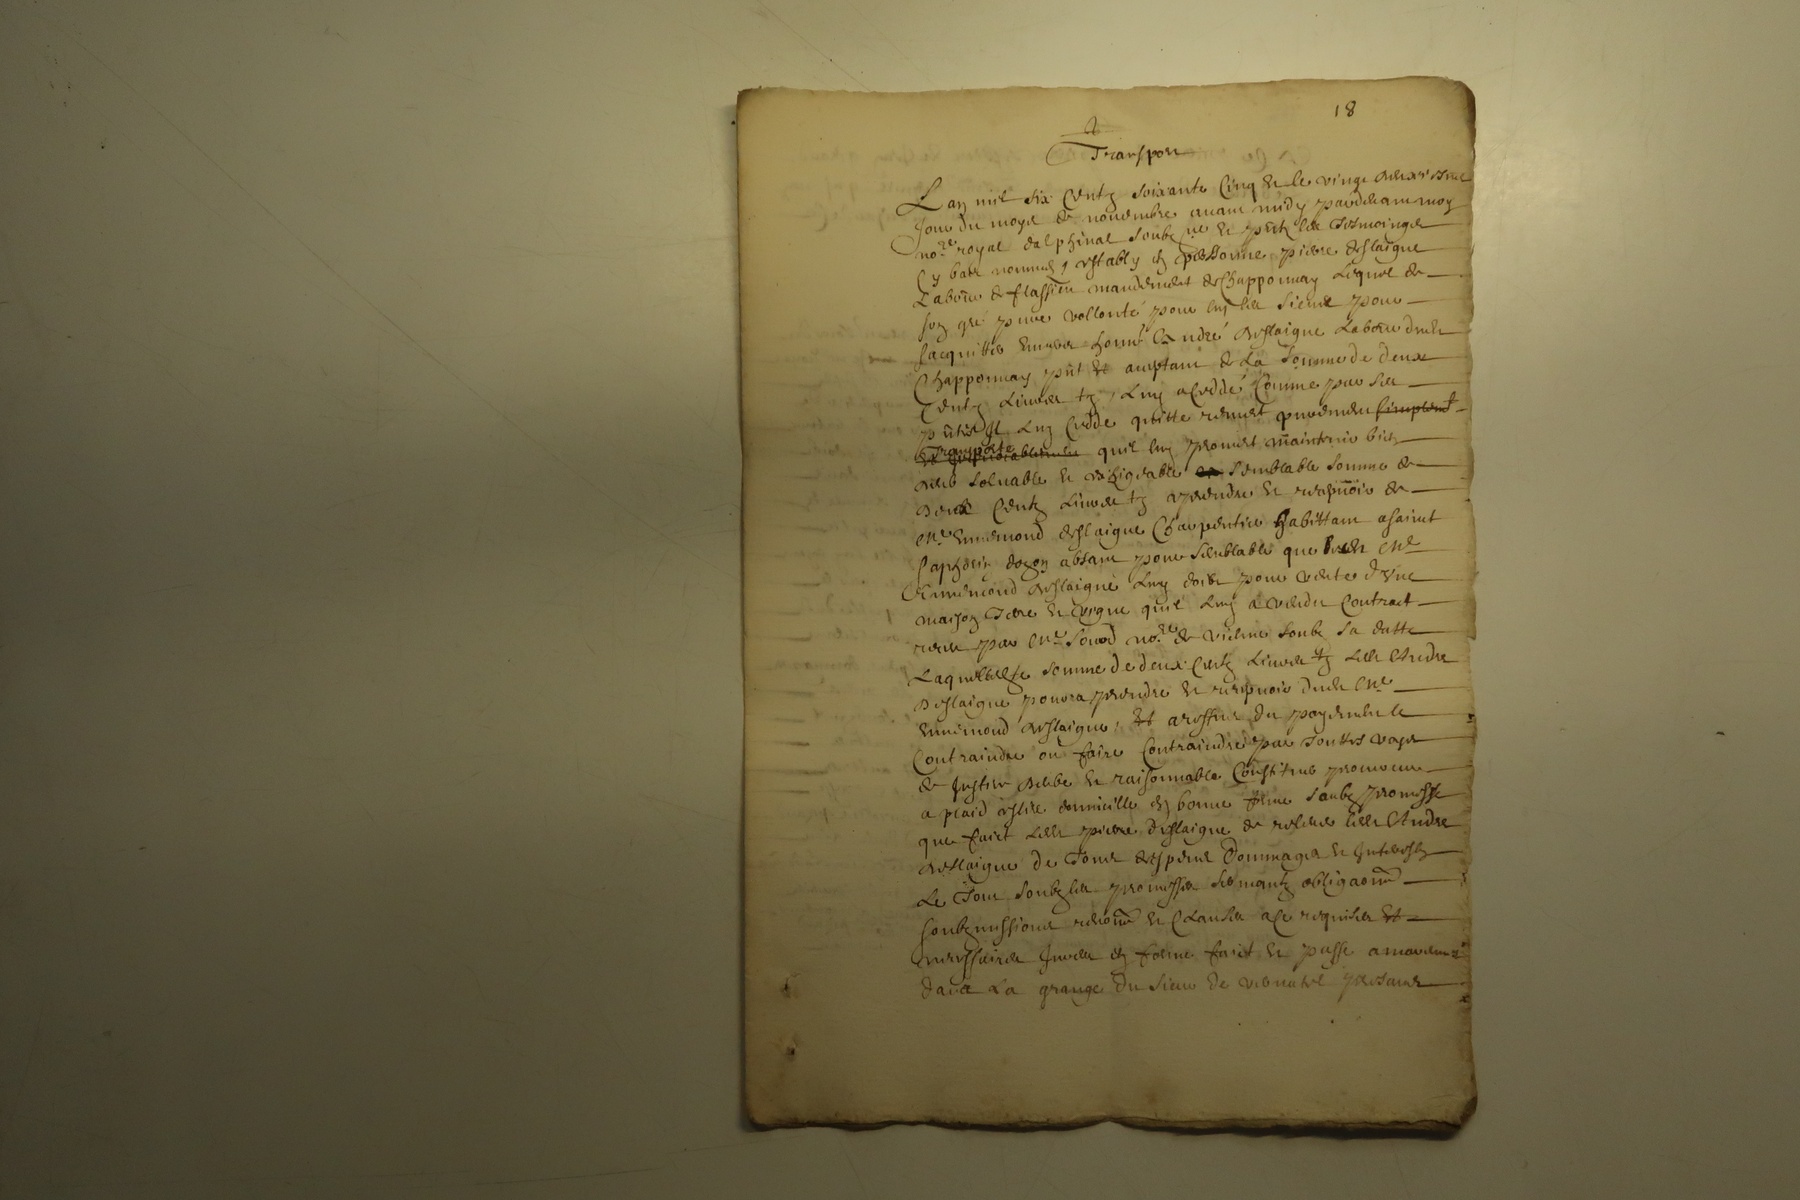 18
Transport
Lan mil six Centz soixante Cinq et le vingt deuxiesme
Jour du moys de novembre avant midy pardevant moy
no.re royal dalphinal soubz.né et pñtz les Tesmoingz
Cy bas nommes, estably en personne pierre deslaigue
Labour de flassieu mandement de Chapponnay Lequel de
son gré pure vollonté pour luy les siens pour
sacquitter envers honné André deslaigue Labour dudt
Chapponnay pñt et aceptant de La somme de deux
Centz Livres tz, Luy a Ceddé Comme par ses
pñtes Il Luy Cedde quitte remet purement simplemt
Transporte et irrevocablement quil luy promet maintenir bien
deub solvable et exhigeable semblable somme de
deux Centz Livres tz prendre et recepvoir de
Me Ennemond deslaigue Charpentier habittant a saint
saphorin dozon absant pour semblable que ledt Me
Ennemond deslaigue Luy doibt pour vente d'une
maison Terre et vigne quil Luy a vendu Contract
receu par Me no.re de vienne soubz sa datte
Laquelle somme de deux Centz Livres tz ledt André
deslaigue pourra prendre et recepvoir dudt Me
Ennemond deslaigue, et a reffus du payement le
Contraindre ou faire Contraindre par Touttes voyes
de Justice deube et raisonnable Constitue procureur
a plaid eslire domicille en bonne forme soubz promesse
que faict ledt pierre deslaigue de relever ledt André
deslaigue de Tous despens Dommages et Interestz
Le Tout soubz les promesses sermantz obligaons
soubzmissions renons et Clauses a Ce requises et
necessaires Jurees en forme faict et passe a
dans La grange du sieur de presans